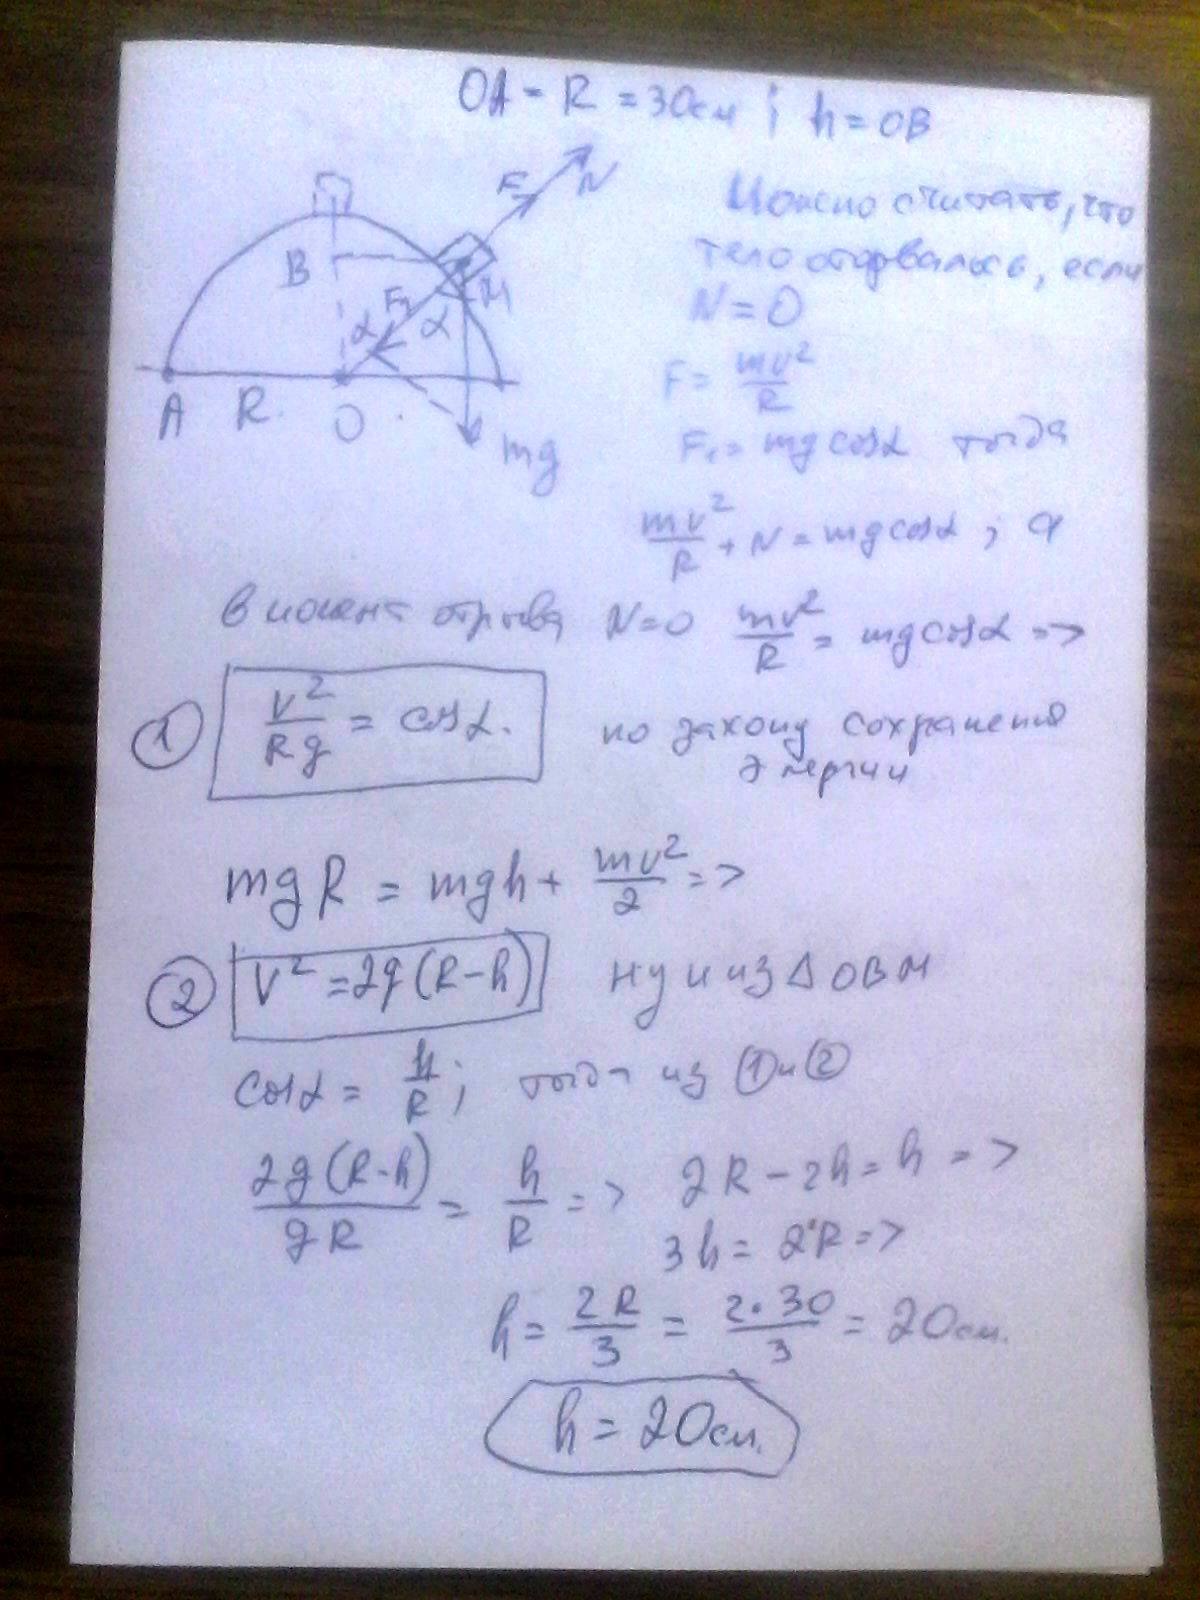 OA = R = 30см ; h = OB
Можно считать, что
тело оторвалось, если
N = 0
F = mv²/R
F₁ = mg cosα тогда
mv²/R + N = mg cosα ; а
в момент отрыва N=0 mv²/R = mg cosα =>
① v²/Rg = cosα. по закону сохранения
энергии
mgR = mgh + mv²/2 =>
② V² = 2g(R-h) ну и из Δ OBM
cosα = h/R ; тогда из ① и ②
2g(R-h)/gR = h/R => 2R - 2h = h =>
3h = 2R =>
h = 2R/3 = 2·30/3 = 20см.
h = 20см.
F N
B F₁ M
α α
A R O
mg